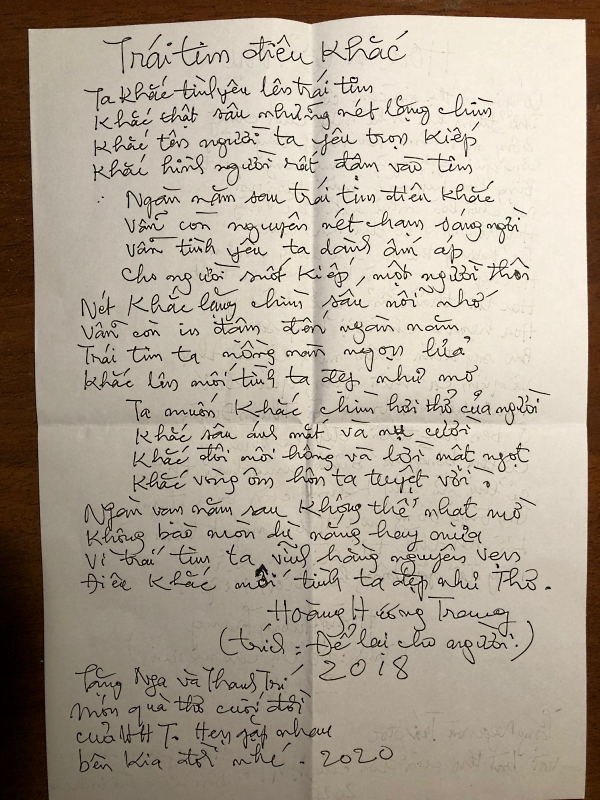 Trái tim điêu khắc
Ta khắc tình yêu lên trái tim
Khắc thật sâu những nét lắng chìm
Khắc tên người ta yêu trọn kiếp
Khắc hình người rất đậm vào tim
Ngàn năm sau trái tim điêu khắc
Vẫn còn nguyên nét chạm sáng ngời
Vẫn tình yêu ta dành ấm áp
Cho người suốt kiếp, một người thôi
Nét khắc lắng chìm sâu nỗi nhớ
Vẫn còn in đậm đến ngàn năm
Trái tim ta nồng nàn ngọn lửa
Khắc lên mối tình ta đẹp như mơ
Ta muốn khắc chìm hơi thở của người
Khắc sâu ánh mắt và nụ cười
Khắc đôi môi hồng và lời mật ngọt
Khắc vòng ôm hôn ta tuyệt vời.
Ngàn vạn năm sau không thể nhạt mờ
Không bào mòn dù nắng hay mưa
Vì trái tim ta vĩnh hằng nguyên vẹn
Điêu khắc mối tình ta đẹp như Thơ.
Hoàng Hương Trang
(trích: Để lại cho người.)
2018
Tặng Nga và Thanh Trí
món quà thơ cuối đời
của HHT. Hẹn gặp nhau
bên kia đời nhé. 2020